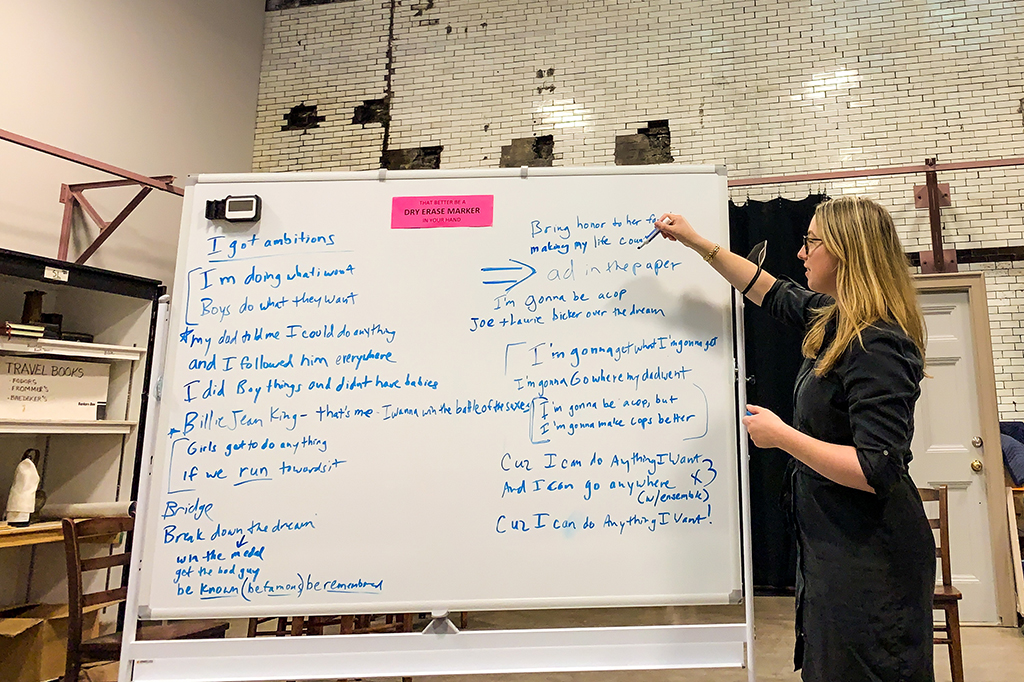 THAT BETTER BE A
DRY ERASE MARKER
IN YOUR HAND
I got ambitions
I'm doing what i want
Boys do what they want
my dad told me I could do anything
and I followed him everywhere
I did Boy things and didnt have babies
Billie Jean King - that's me - I wanna win the battle of the sexes
Girls got to do anything
if we run towards it
Bridge
Break down the dream
win the medal
got the bad guy
be known (be famous) be remembered
Bring honor to her
making my life
ad in the paper
I'm gonna be a cop
Joe + Laurie bicker over the dream
I'm gonna get what I'm gonna get
I'm gonna Go where my dad went
I'm gonna be a cop, but
I'm gonna make cops better
Cuz I can do AnyThing I Want
And I can go anywhere x3
(w/ensemble)
Cuz I can do Anything I Want!
TRAVEL BOOKS
- FODORS
- FROMMER'S
- BAEDEKER'S